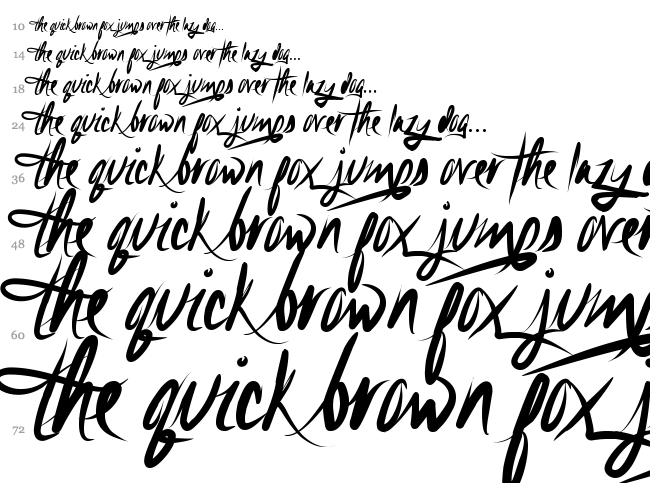 10 the quick brown fox jumps over the lazy dog...
14 the quick brown fox jumps over the lazy dog...
18 the quick brown fox jumps over the lazy dog...
24 the quick brown fox jumps over the lazy dog...
36 the quick brown fox jumps over the lazy
48 the quick brown fox jumps over
60 the quick brown fox jumps
72 the quick brown fox